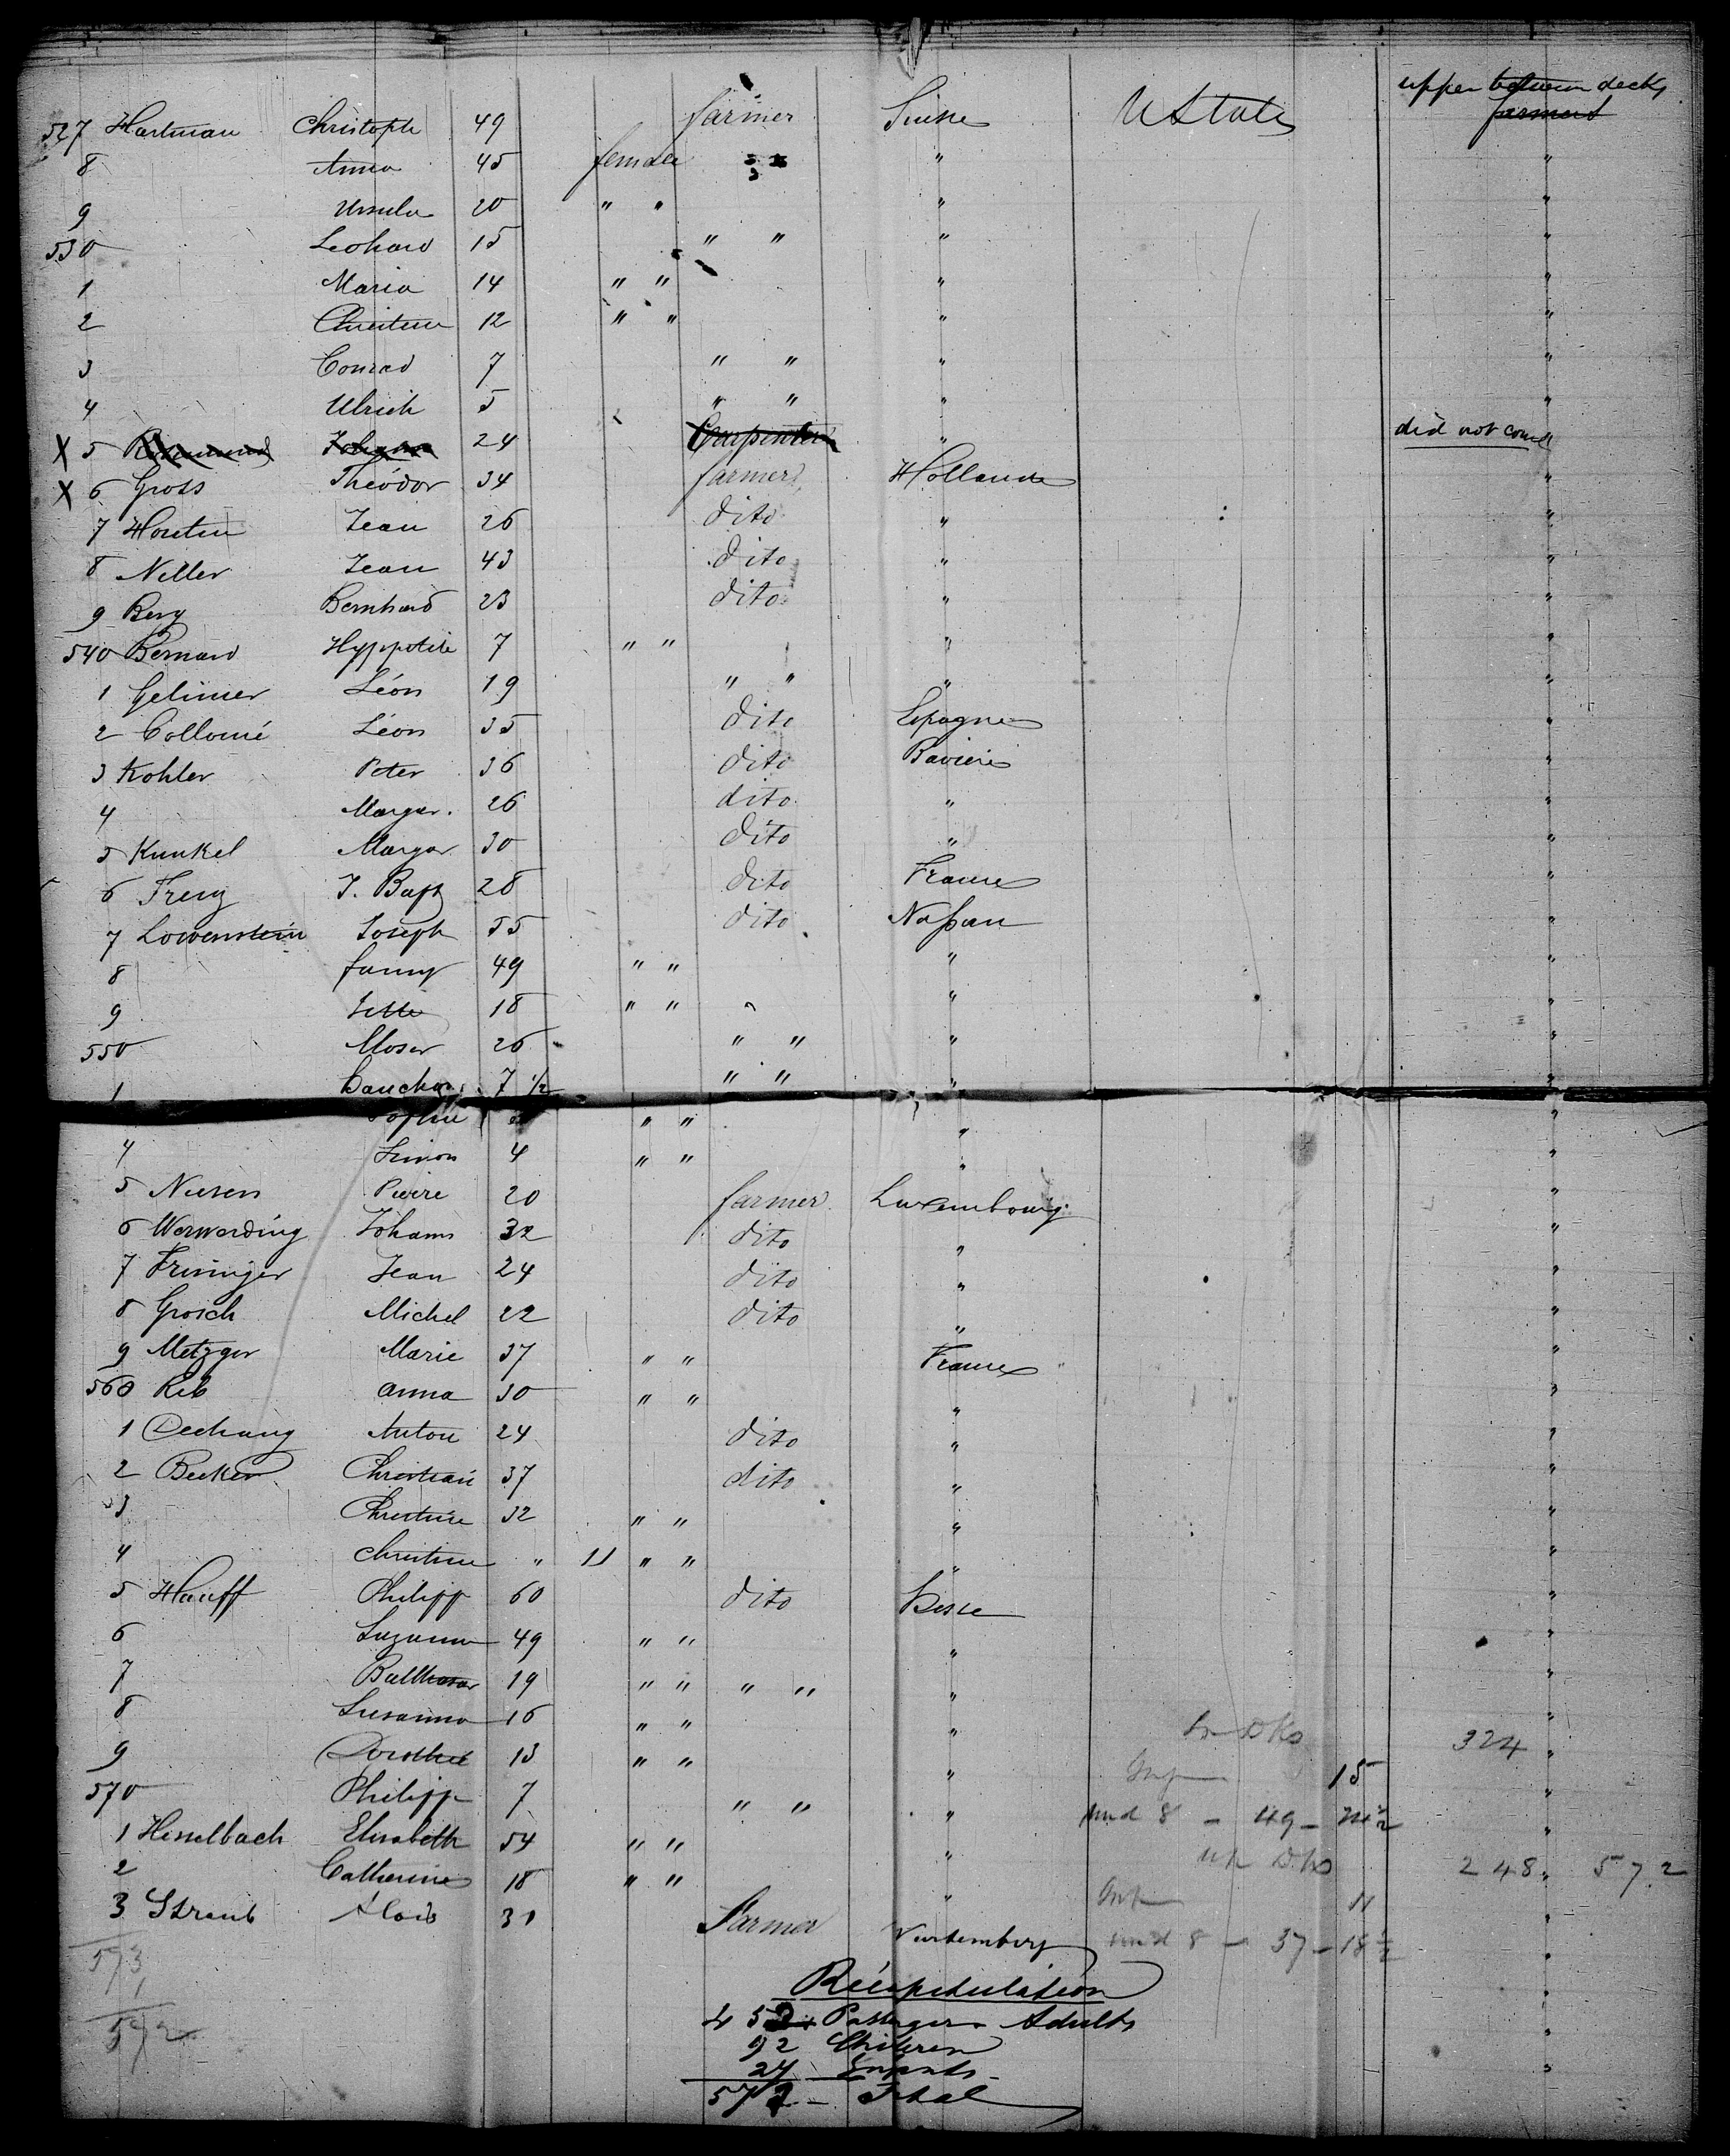 upper between decks
527 Hartman Christoph 49 farmer Suisse U States farmers
8 Anna 45 female " " "
9 Ursula 20 " " " "
530 Leohard 15 " " " "
1 Maria 14 " " " "
2 Christine 12 " " " "
3 Conrad 7 " " " "
4 Ulrich 5 " " " "
X 5 Johann 24 Carpenter " did not come
X 6 Gross Théodor 34 farmer Hollande "
7 Houtin Jean 26 dito " "
8 Neller Jean 43 dito " "
9 Berg Bernhard 23 dito " "
540 Bernard Hyppolite 7 " " " "
1 Gelinier Léon 19 " " " "
2 Collomé Léon 35 dito Espagne "
3 Kohler Peter 36 dito Baviere "
4 Margar. 26 dito " "
5 Kunkel Margar. 30 dito " "
6 Freny J. Bapt 28 dito France "
7 Lowenstein Joseph 55 dito Nassau "
8 fanny 49 " " " "
9 Jette 18 " " " "
550 Moser 26 " " " "
1 7 1/2 " " " "
Sophie " " " "
4 Simon 4 " " " "
5 Niesen Pierre 20 farmer Luxembourg "
6 Werwerding Johann 32 dito " "
7 Frisinger Jean 24 dito " "
8 Grosch Michel 22 dito " "
9 Metzger Marie 37 " " France "
560 Reb anna 30 " " " "
1 Dechang Anton 24 dito " "
2 Becker Christian 37 dito " "
3 Christine 32 " " " "
4 christine " 11 " " " "
5 Hauff Philipp 60 dito Hesse "
6 Suzanna 49 " " " "
7 Balthasar 19 " " " " " "
8 Susanna 16 " " " "
9 Dorothee 13 " " " Lr Dks 324 "
570 Philipp 7 " " " Inf 15 "
1 Hesselbach Elisabeth 54 " " " und 8 - 49 - 24½ "
2 Catherine 18 " " " up Dks 248 " 572
3 Straub Alois 31 Farmer Wurtemberg Inf 11 "
573 und 8 - 37 - 18½ "
1
572
Récapitulation
453 Passagers Adults
92 Children
27 Enfants
572 - Total